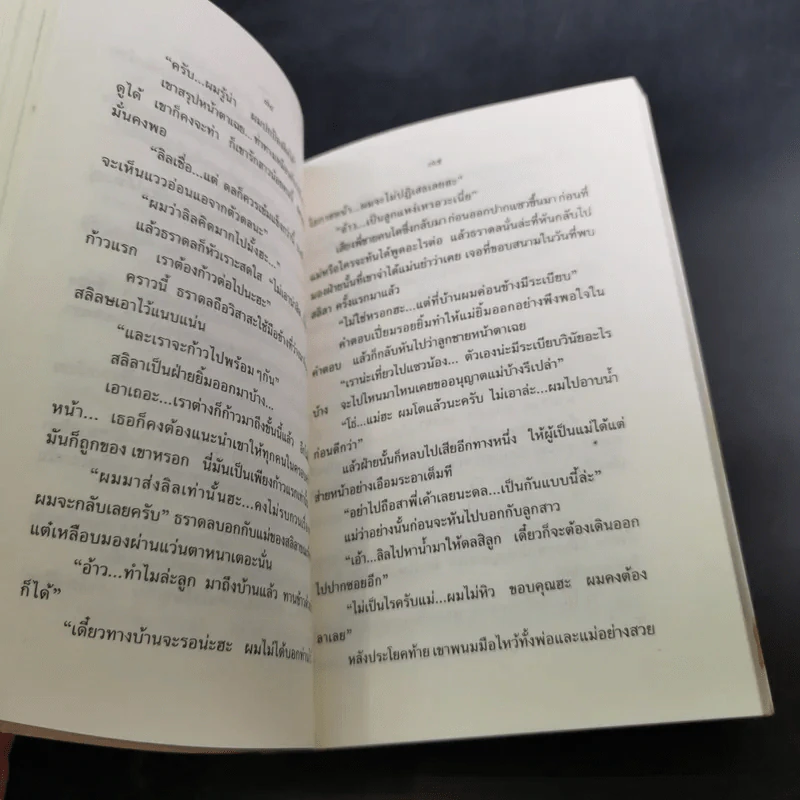 “ครับ...ผมรู้น่า
เขาสรุปหน้าตาเฉย...
ดูได้ เขาก็คงจะทำ
มั่นคงพอ
“ลิลเชื่อ...แต่ ดลก็ควรเข้มแข็งกว่านี้
จะเห็นแววอ่อนแอจากตัวดลนะ”
“ผมว่าลิลคิดมากไปมั้งฮะ...”
แล้วธราดลก็หัวเราะสดใส
ก้าวแรก เราต้องก้าวต่อไปนะฮะ”
คราวนี้ ธราดลถือวิสาสะใช้มือข้างที่ว่าง
สลิลษเอาไว้แนบแน่น
“และเราจะก้าวไปพร้อมๆกัน”
สลิลาเป็นฝ่ายยิ้มออกมาบ้าง...
เอาเถอะ...เราต่างก็ก้าวมาถึงขั้นนี้แล้ว
หน้า... เธอก็คงต้องแนะนำเขาให้ทุกคนในครอบ
มันก็ถูกของ เขาหรอก นี่มันเป็นเพียงก้าวแรกเท่านั้น
“ผมมาส่งลิลเท่านั้นฮะ...คงไม่รบกวน
ผมจะกลับเลยครับ” ธราดลบอกกับแม่ของสลิลา
แต่เหลือบมองผ่านแว่นตาหนาเตอะนั่น
“อ้าว...ทำไมล่ะลูก มาถึงบ้านแล้ว ทานข้าว
ก็ได้”
“เดี๋ยวทางบ้านจะรอน่ะฮะ ผมไม่ได้บอกท่าน
๘๕
ผมจะไม่ปฏิเสธเลยฮะ”
“อ้าว...เป็นลูกแหง่เหรอวะเนี่ย”
เสียงพี่ชายคนโตซึ่งกลับมา ก่อนออกปากแซวขึ้นมา ก่อนที่
แม่หรือใครจะทันได้พูดอะไรต่อ แล้วธราดลนั่นล่ะที่หันกลับไป
มองฝ่ายนั้นที่เขาจำได้แม่นยำว่าเคย เจอที่ขอบสนามในวันที่พบ
สลิลา ครั้งแรกมาแล้ว
“ไม่ใช่หรอกฮะ...แต่ที่บ้านผมค่อนข้างมีระเบียบ”
คำตอบเปี่ยมรอยยิ้มทำให้แม่ยิ้มออกอย่างพึงพอใจใน
คำตอบ แล้วก็กลับหันไปว่าลูกชายหน้าตาเฉย
“เราน่ะเที่ยวไปแซวน้อง... ตัวเองน่ะมีระเบียบวินัยอะไร
บ้าง จะไปไหนมาไหนเคยขออนุญาตแม่บ้างรึเปล่า”
“โธ่...แม่ฮะ ผมโตแล้วนะครับ ไม่เอาล่ะ...ผมไปอาบน้ำ
ก่อนดีกว่า”
แล้วฝ่ายนั้นก็หลบไปเสียอีกทางหนึ่ง ให้ผู้เป็นแม่ได้แต่
ส่ายหน้าอย่างเอือมระอาเต็มที
“อย่าไปถือสาพี่เค้าเลยนะดล...เป็นกันแบบนี้ล่ะ”
แม่ว่าอย่างนั้นก่อนจะหันไปบอกกับลูกสาว
“เอ้า...ลิลไปหาน้ำมาให้ดลสิลูก เดี๋ยวก็จะต้องเดินออก
ไปปากซอยอีก”
“ไม่เป็นไรครับแม่...ผมไม่หิว ขอบคุณฮะ ผมคงต้อง
ลาเลย”
หลังประโยคท้าย เขาพนมมือไหว้ทั้งพ่อและแม่อย่างสวย